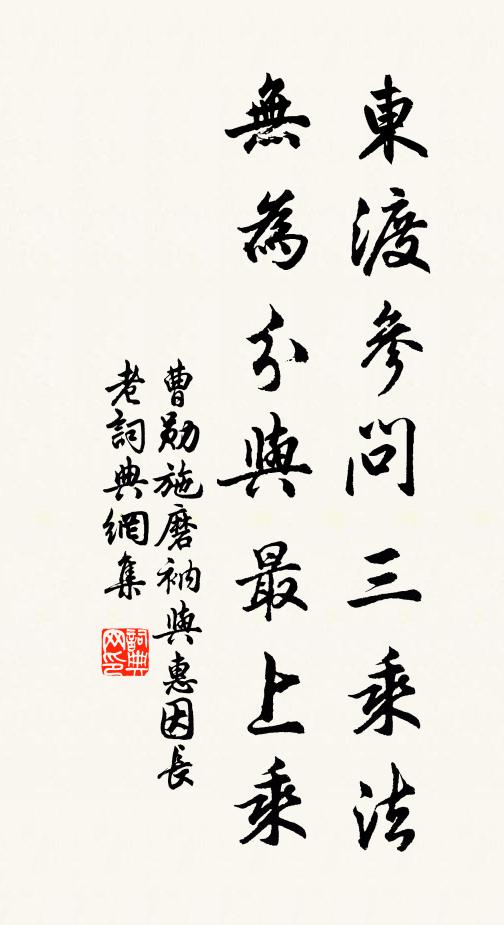 東渡參問三乘法
無為分與最上乘
曹勛施磨衲與惠因長
老詞典網集
詞典网印